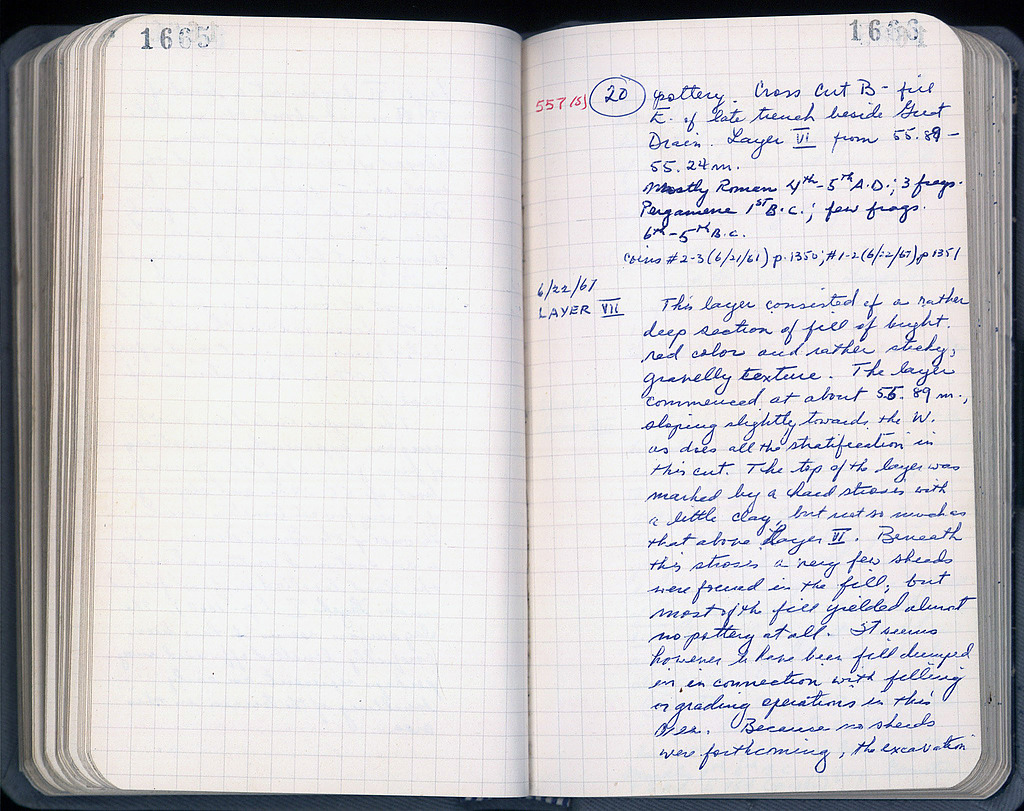 1665
1666
557 (s) 20 pottery. Cross Cut B - fill
E. of late trench beside Great
Drain. Layer VI from 55.89 -
55.24 m.
Mostly Roman 4th-5th A.D.; 3 frags.
Pergamene 1ST B.C.; few frags.
6th-5th B.C.
Coins #2-3 (6/21/61) p. 1350; #1-2 (6/22/67) p 1351
6/22/67
LAYER VII This layer consisted of a rather
deep section of fill of bright
red color and rather sticky,
gravelly texture. The layer
commenced at about 55.89 m.,
sloping slightly towards the W.
as does all the stratification in
this cut. The top of the layer was
marked by a hard strosis with
a little clay, but not so much as
that above Layer VI. Beneath
this strosis a very few sherds
were found in the fill; but
most of the fill yielded almost
no pottery at all. It seems
however to have been fill dumped
in in connection with filling
or grading operations in this
area. Because no sherds
were forthcoming, the excavation